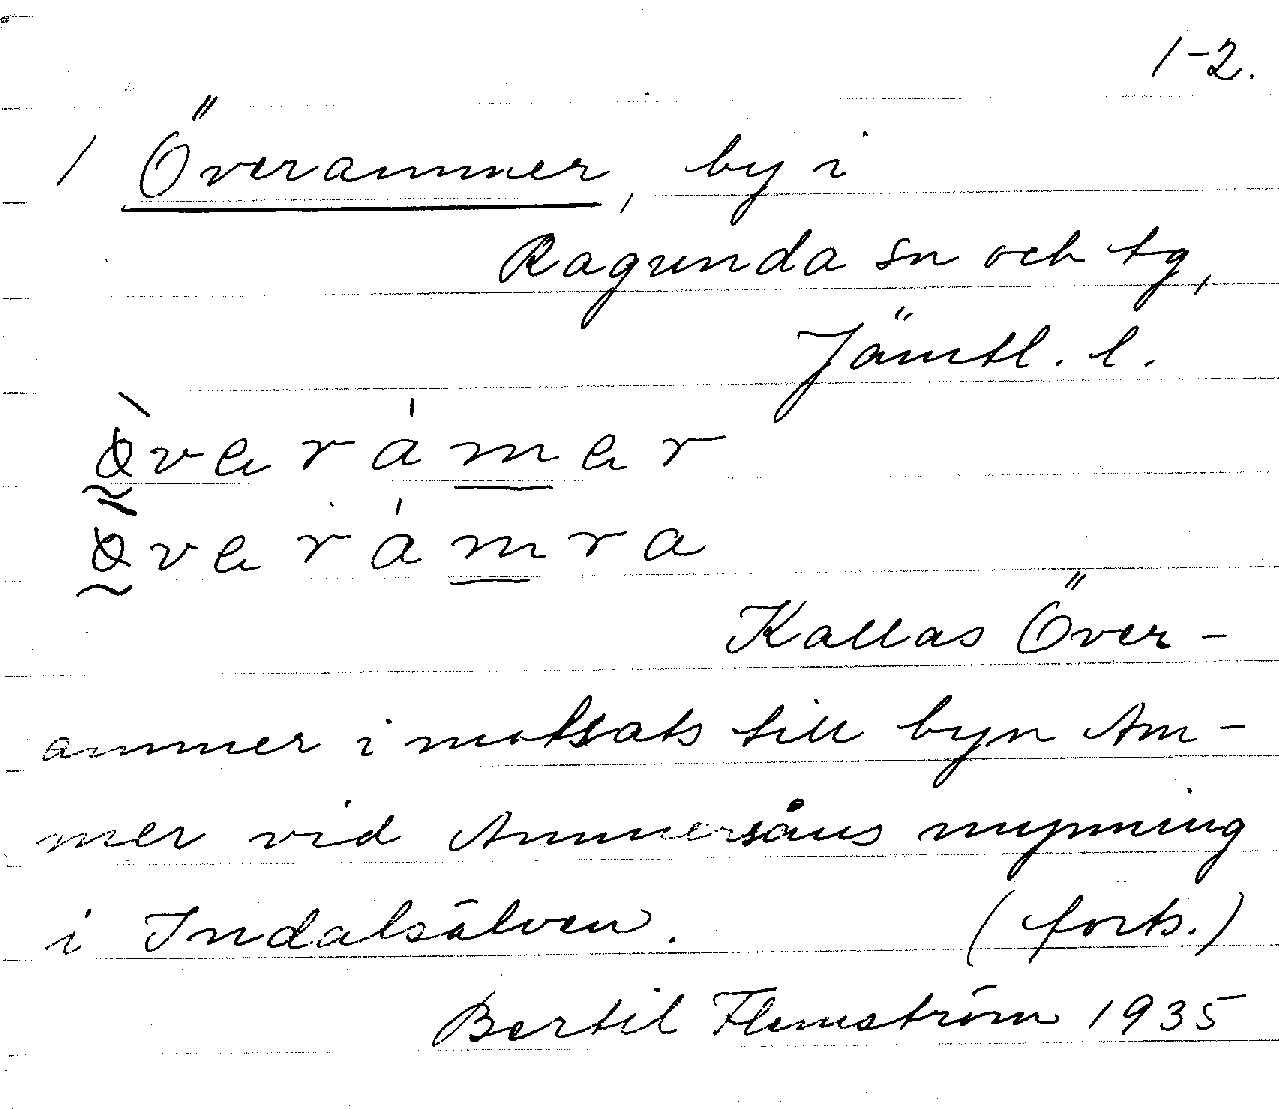 1-2.
1 Överammer, by i
Ragunda sn och tg,
Jämtl. l.
Kallas Över-
ammer i motsats till byn Am-
mer vid Ammersåns mynning
i Indalsälven. (forts.)
Bertil Flemström 1935